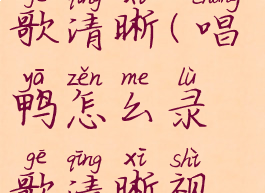 歌清晰(唱
yā zěn me lù
鸭怎么录
gē qīng xī shì
歌清晰视